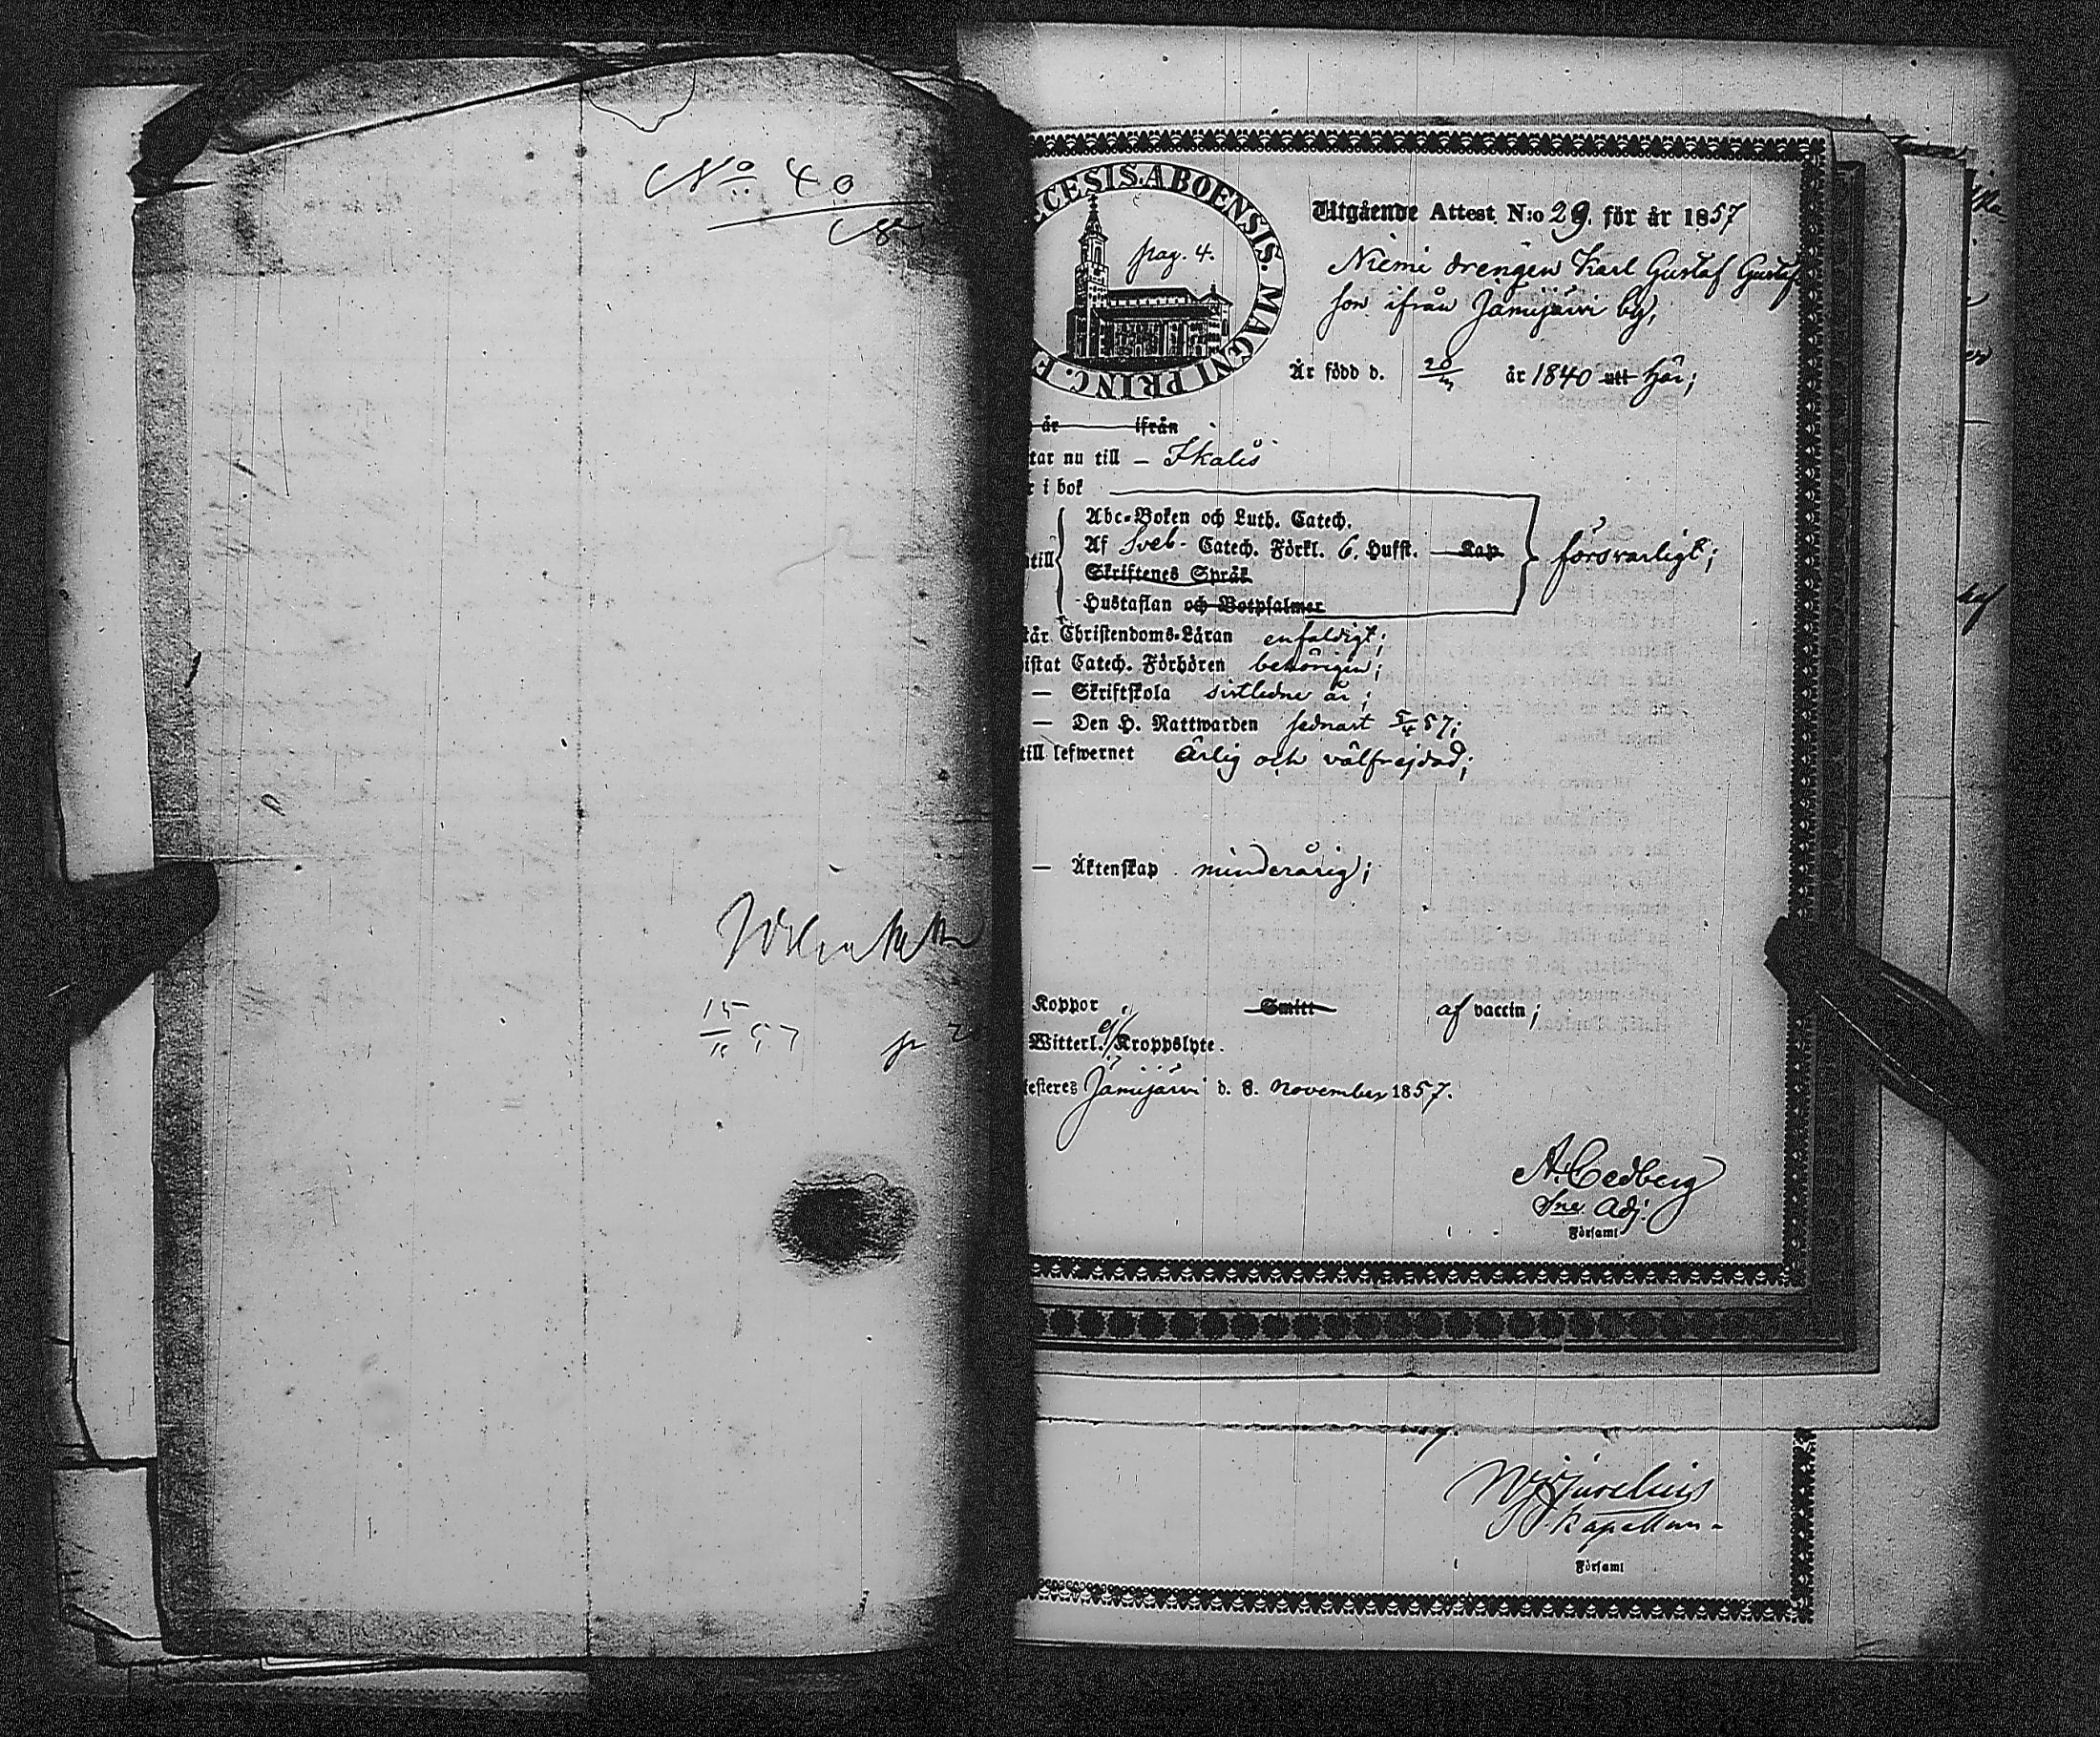 No 40
15
57
CESIS. ABOENSIS. MAGNI PRINC. F
pag. 4.
Utgående Attest N:o 29. för år 1857
Niemi drengen Karl Gustaf Gustaf
son ifrån Jämijärvi by,
Är född d. 20 år 1840 utt här;
år ifrån
tar nu till – Ikalis
r i bok
till
Abc-Boken och Luth. Catech.
Af Sveb. Catech. Förkl. 6. Hufst. Kap
Skriftenes Språk
Hustaflan och Botpsalmer
försvarligt;
tår Christendoms-Läran enfaldigt;
istat Catech. Förhören behörigen;
— Skriftskola sistledne år;
— Den H. Nattwarden sednast 5/4 57;
till lefwernet ärlig och välfrejdad;
— Äktenskap minderårig;
Koppor Smitt af vaccin;
Witterl. Kroppslyte.
testeres Jämijärvi d. 8. November 1857.
A. Cedberg
Adj.
Församl
Kapellan
Församl